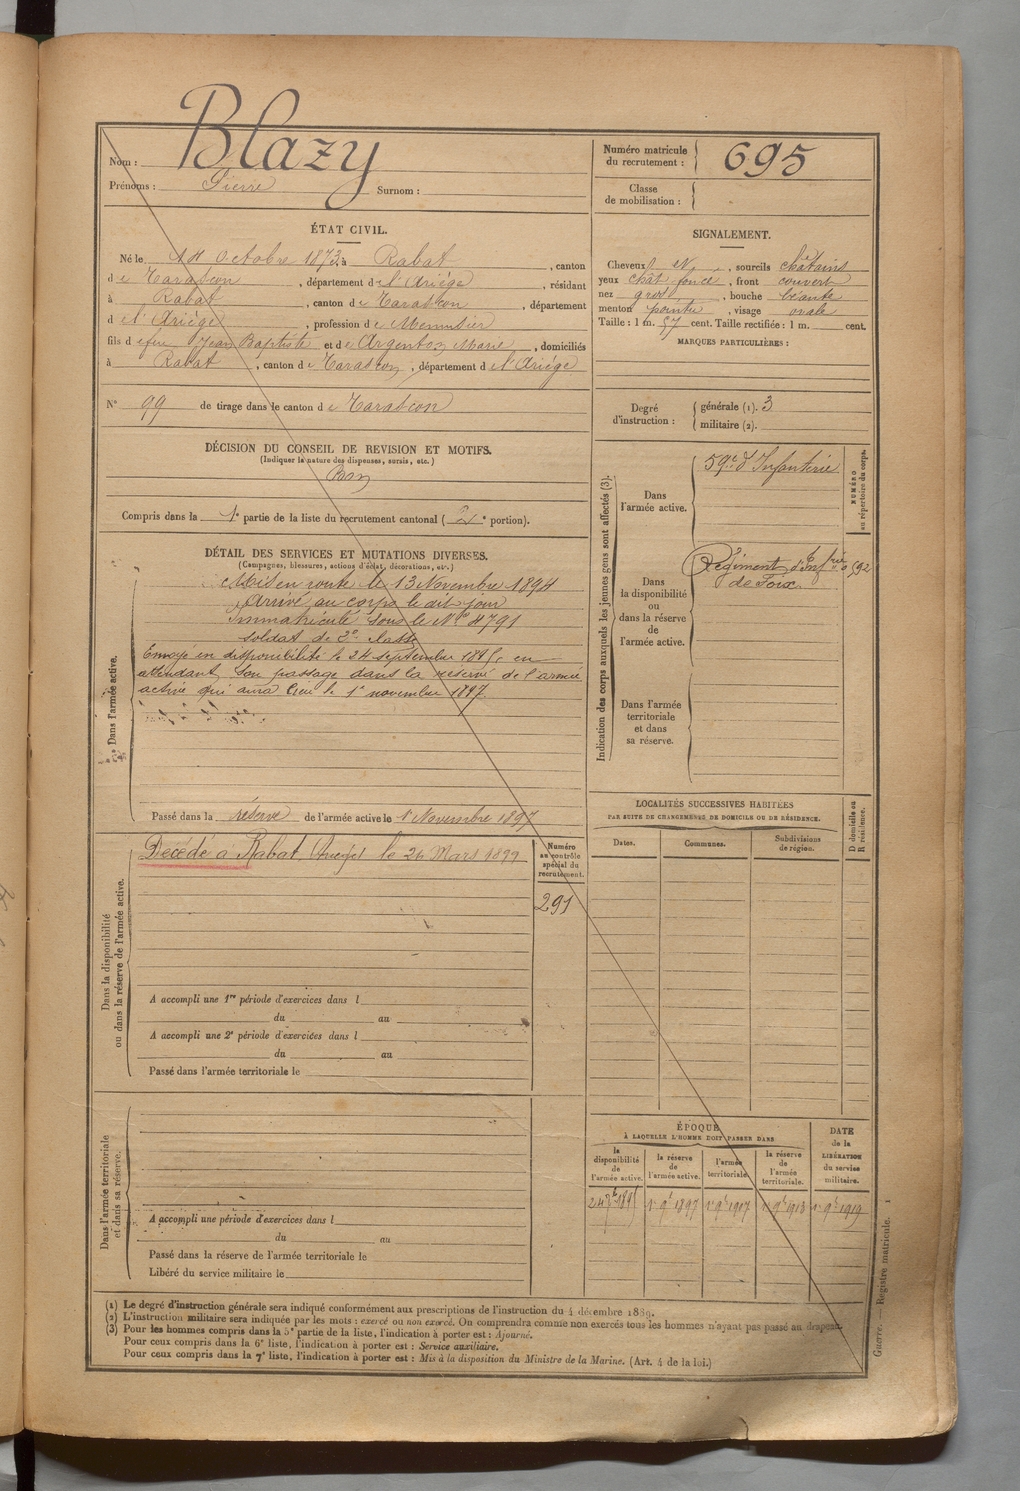 Nom : Blazy
Prénoms : Pierre Surnom :
Numéro matricule du recrutement : 695
Classe de mobilisation :
ÉTAT CIVIL.
Né le Octobre 1873, à Rabat, canton
de Tarascon, département de l'Ariège, résidant
à Rabat, canton de Tarascon, département
de l'Ariège, profession de Menuisier
fils de feu Jean Baptiste et de Argenton Marie, domiciliés
à Rabat, canton de Tarascon, département de l'Ariège
N° 99 de tirage dans le canton de Tarascon
DÉCISION DU CONSEIL DE REVISION ET MOTIFS.
(Indiquer la nature des dispenses, sursis, etc.)
Bon
Compris dans la 1e partie de la liste du recrutement cantonal (2e portion).
DÉTAIL DES SERVICES ET MUTATIONS DIVERSES.
(Campagnes, blessures, actions d'éclat, décorations, etc.)
Dans l'armée active.
Mis en route le 13 Novembre 1894
Arrivé au corps le dit jour
Immatriculé sous le No 4791
soldat de 2e classe
Envoyé en disponibilité le 24 septembre 1895, en
attendant son passage dans la réserve de l'armée
active qui aura lieu le 1er novembre 1897
Passé dans la réserve de l'armée active le 1er Novembre 1897
Dans la disponibilité
ou dans la réserve de l'armée active.
Décédé à Rabat (Ariège) le 26 Mars 1899
Numéro
au contrôle
spécial du
recrutement.
291
A accompli une 1re période d'exercices dans l
du au
A accompli une 2e période d'exercices dans l
du au
Passé dans l'armée territoriale le
Dans l'armée territoriale
et dans sa réserve.
A accompli une période d'exercices dans l
du au
Passé dans la réserve de l'armée territoriale le
Libéré du service militaire le
SIGNALEMENT.
Cheveux N, sourcils châtains
yeux chât foncé, front couvert
nez gros, bouche béante
menton pointu, visage ovale
Taille : 1 m. 57 cent. Taille rectifiée : 1 m. cent.
MARQUES PARTICULIÈRES :
Degré d'instruction : générale (1). 3
militaire (2).
Indication des corps auxquels les jeunes gens sont affectés (3).
NUMÉRO
au répertoire du corps.
Dans
l'armée active.
59e d'Infanterie
Dans
la disponibilité
ou
dans la réserve
de
l'armée active.
Régiment d'Infrie
de Foix
Dans l'armée
territoriale
et dans
sa réserve.
LOCALITÉS SUCCESSIVES HABITÉES
PAR SUITE DE CHANGEMENTS DE DOMICILE OU DE RÉSIDENCE.
Dates. Communes. Subdivisions de région.
D domicile ou
R résidence.
ÉPOQUE
À LAQUELLE L'HOMME DOIT PASSER DANS
la disponibilité de l'armée active.
la réserve de l'armée active.
l'armée territoriale.
la réserve de l'armée territoriale.
DATE de la LIBÉRATION du service militaire.
24 7bre 1895 1er 9bre 1897 1er 9bre 1917 1er 9bre 1913 1er 9bre 1919
(1) Le degré d'instruction générale sera indiqué conformément aux prescriptions de l'instruction du 4 décembre 1889.
(2) L'instruction militaire sera indiquée par les mots : exercé ou non exercé. On comprendra comme non exercés tous les hommes n'ayant pas passé au drapeau.
(3) Pour les hommes compris dans la 5e partie de la liste, l'indication à porter est : Ajourné.
Pour ceux compris dans la 6e liste, l'indication à porter est : Service auxiliaire.
Pour ceux compris dans la 7e liste, l'indication à porter est : Mis à la disposition du Ministre de la Marine. (Art. 4 de la loi.)
Guerre. — Registre matricule. 1